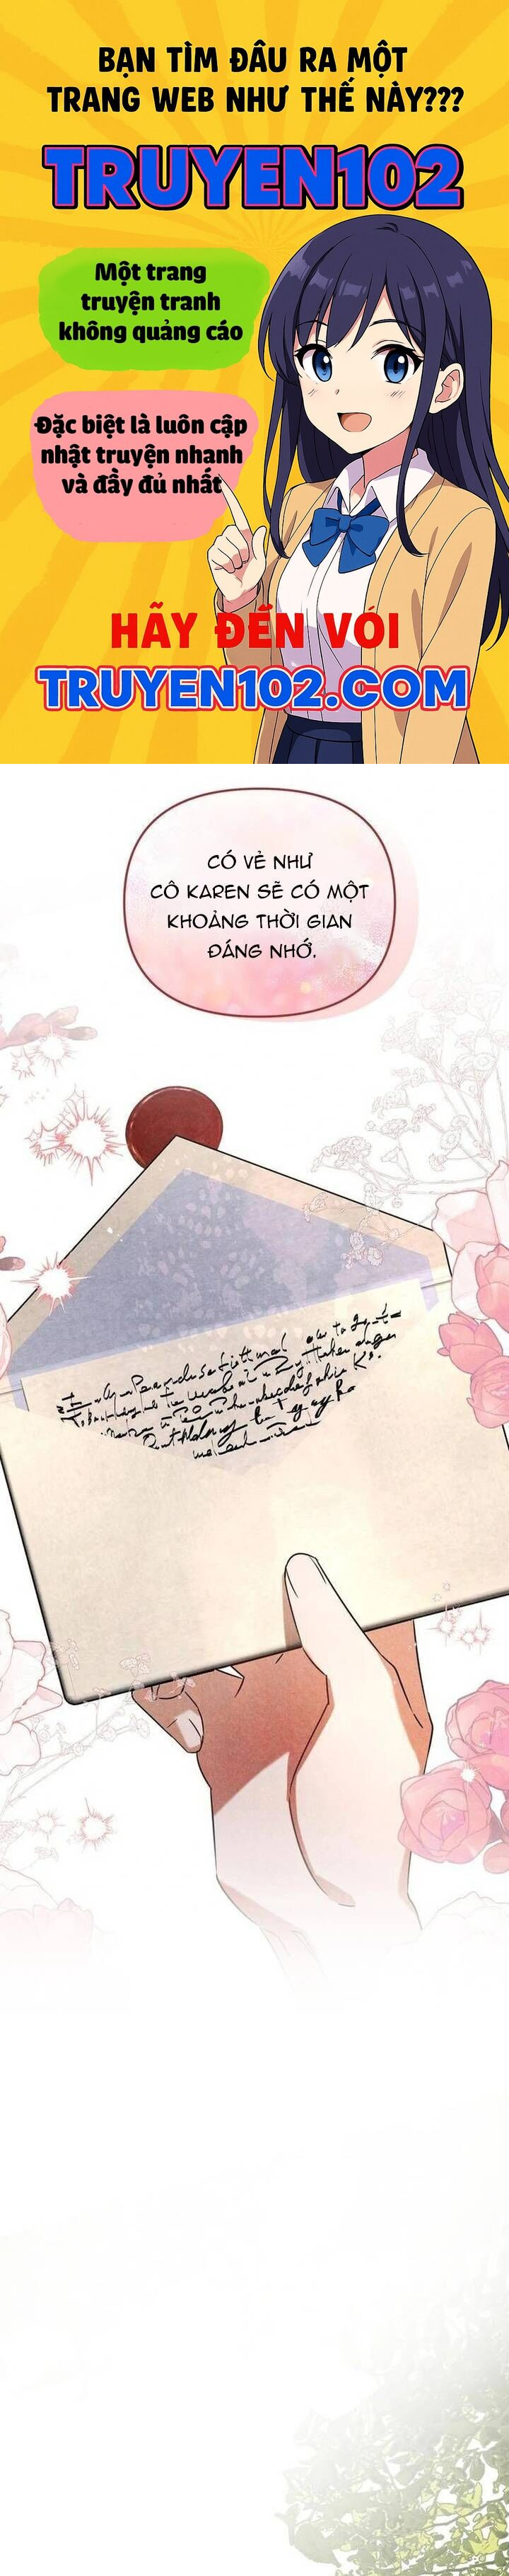 BẠN TÌM ĐÂU RA MỘT
TRANG WEB NHƯ THẾ NÀY???
TRUYEN102
Một trang
truyện tranh
không quảng cáo
Đặc biệt là luôn cập
nhật truyện nhanh
và đầy đủ nhất
HÃY ĐẾN VỚI
TRUYEN102.COM
CÓ VẺ NHƯ
CÔ KAREN SẼ CÓ MỘT
KHOẢNG THỜI GIAN
ĐÁNG NHỚ.